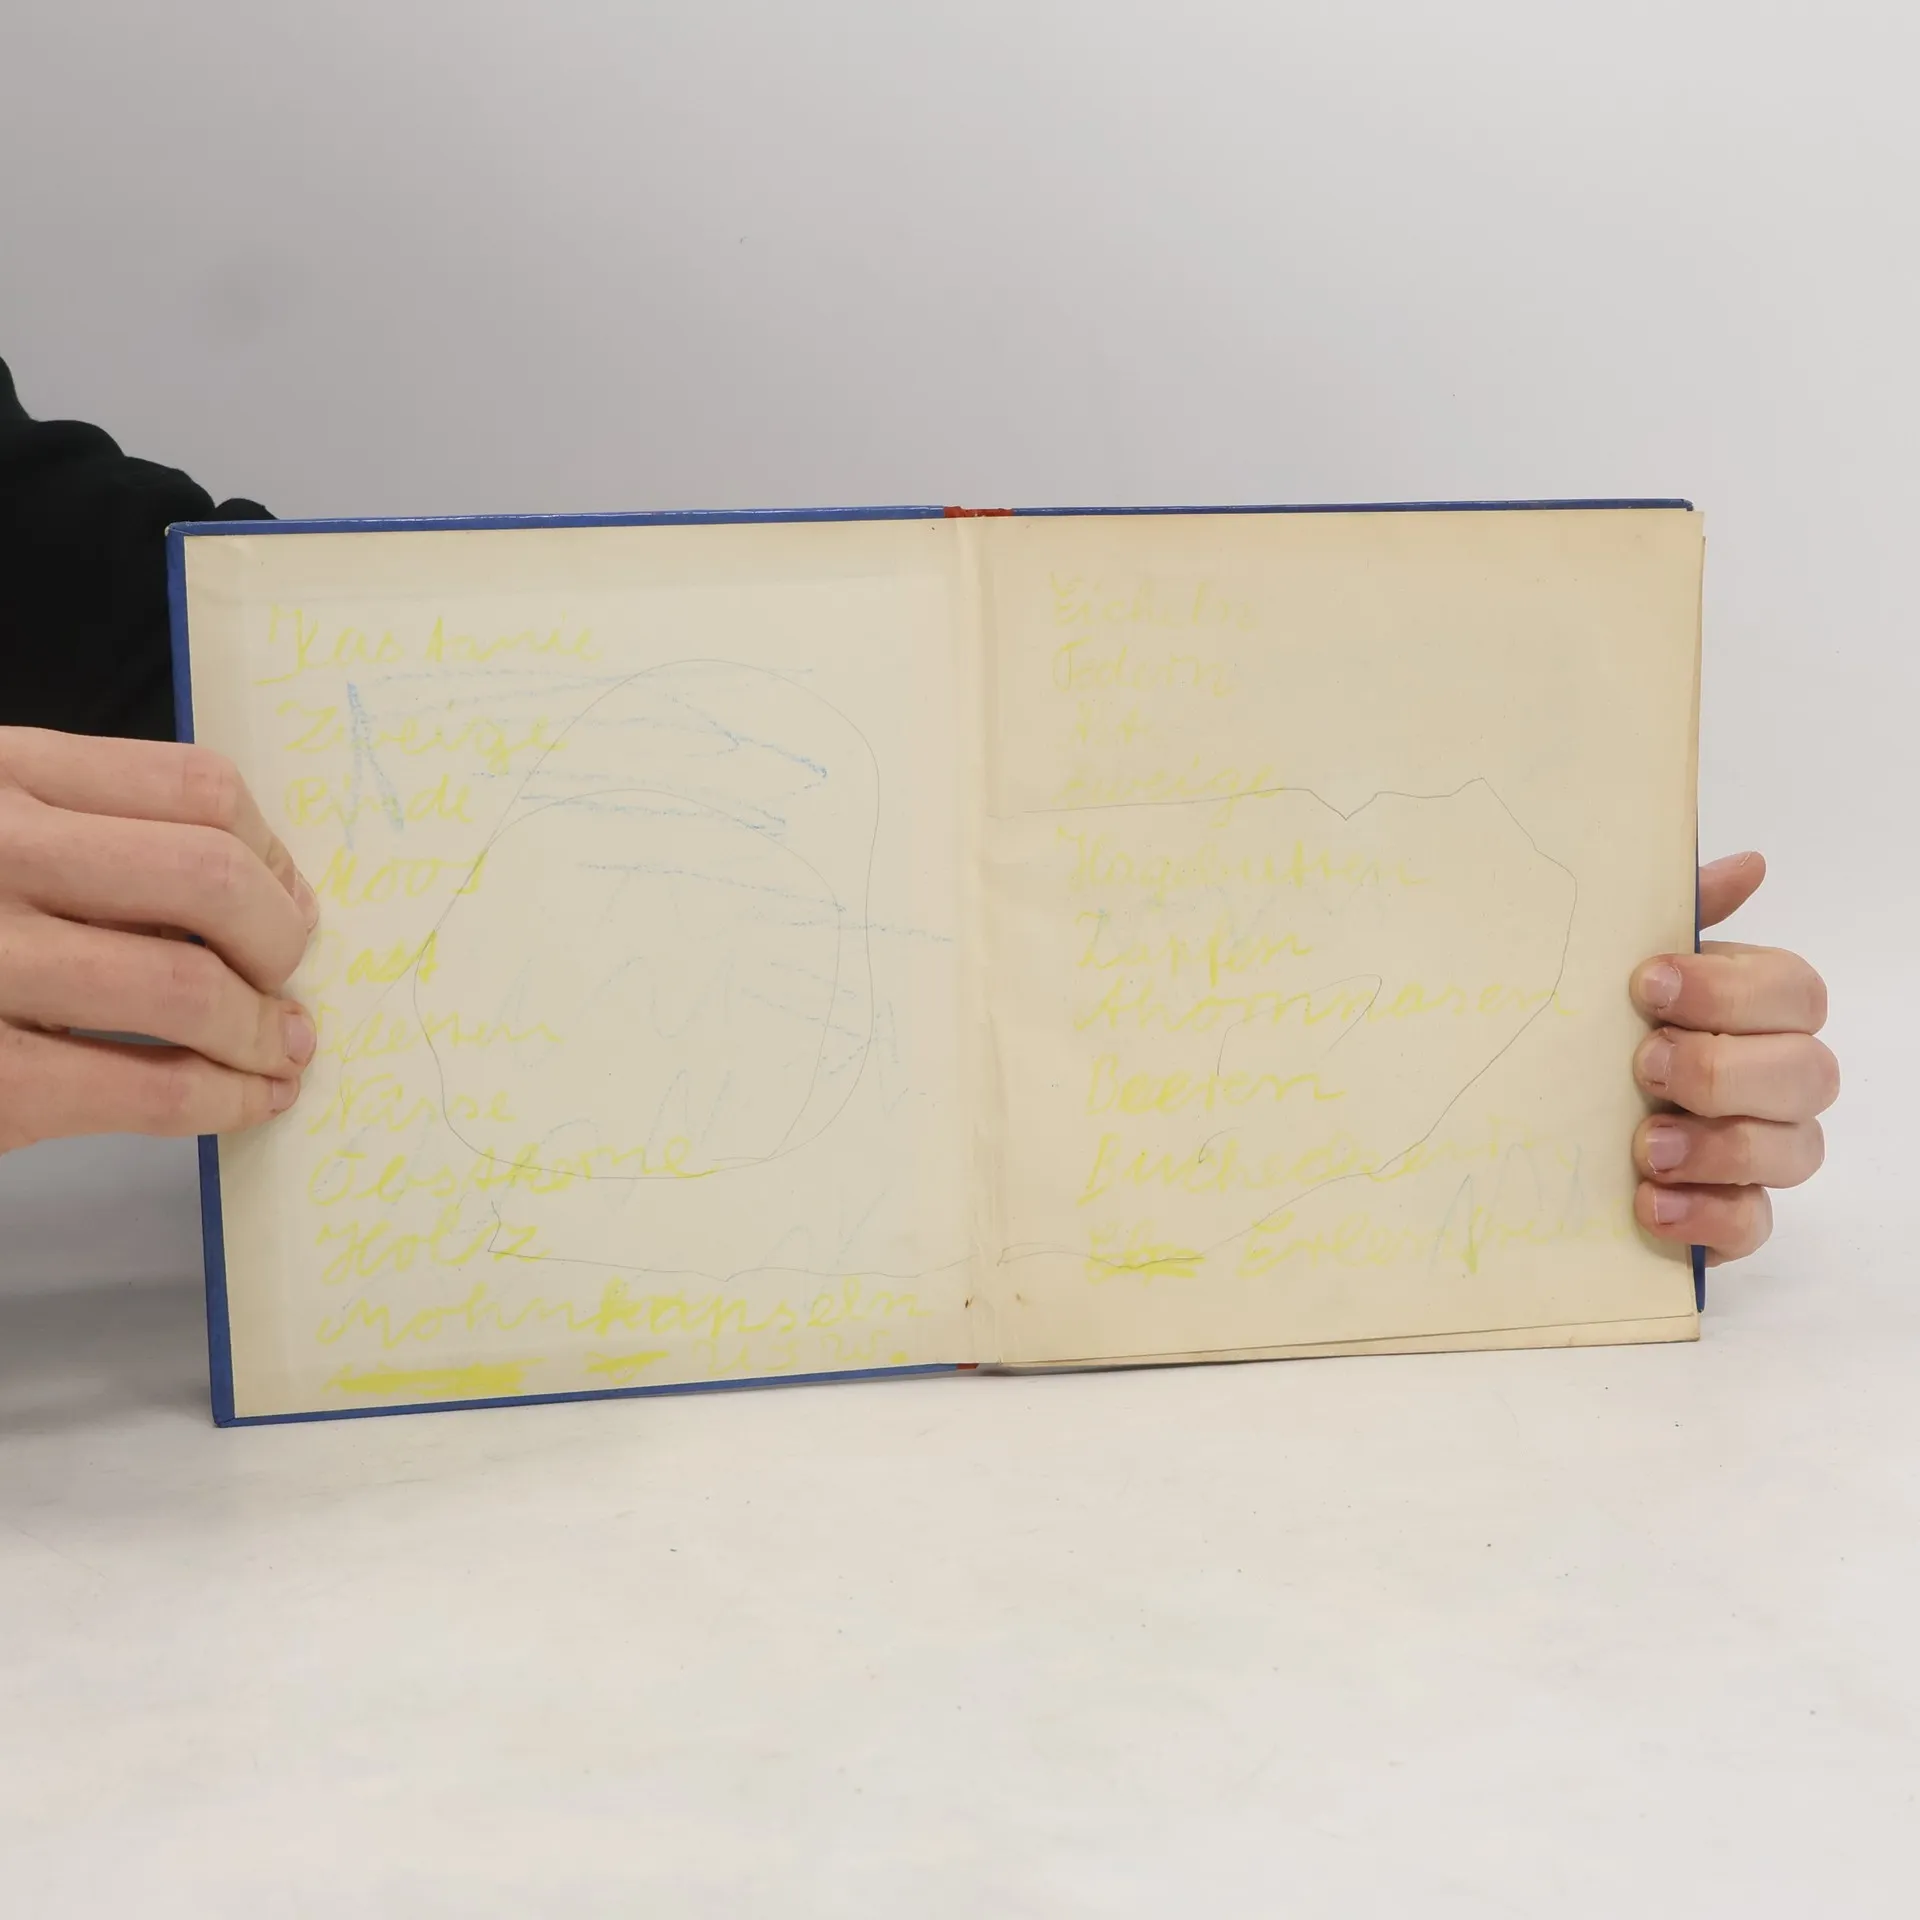 Kastanie
Zweige
Rinde
Moos
Nüsse
Obstkerne
Holz
Mohnkapseln
u s w.
Eicheln
Federn
zweige
Hagebutten
Zapfen
Ahornnasen
Beeren
Bucheckern